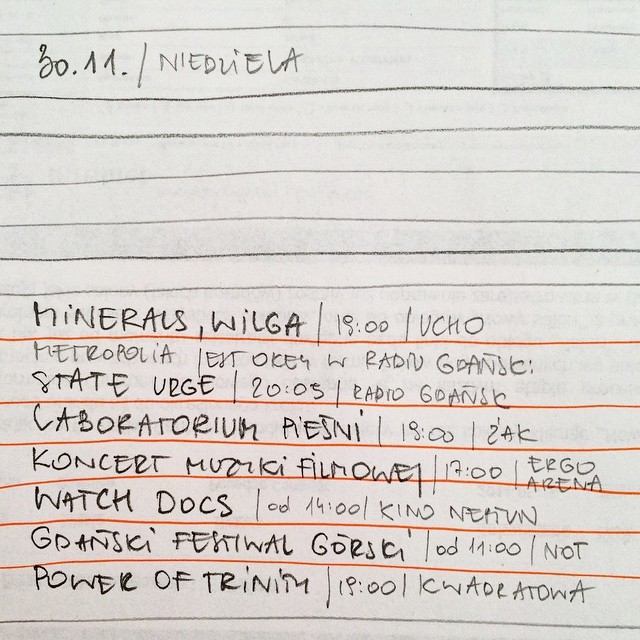 30.11. / NIEDZIELA
MINERALS, WILGA | 19:00 / UCHO
METROPOLIA JEST OKEY W RADIU GDAŃSK:
STATE URGE | 20:05 / RADIO GDAŃSK
LABORATORIUM PIEŚNI / 19:00 / ŻAK
KONCERT MUZYKI FILMOWEJ / 17:00 / ERGO ARENA
WATCH DOCS | od 14:00 / KINO NEPTUN
GDAŃSKI FESTIWAL GÓRSKI / od 11:00 / NOT
POWER OF TRINITY / 19:00 / KWADRATOWA